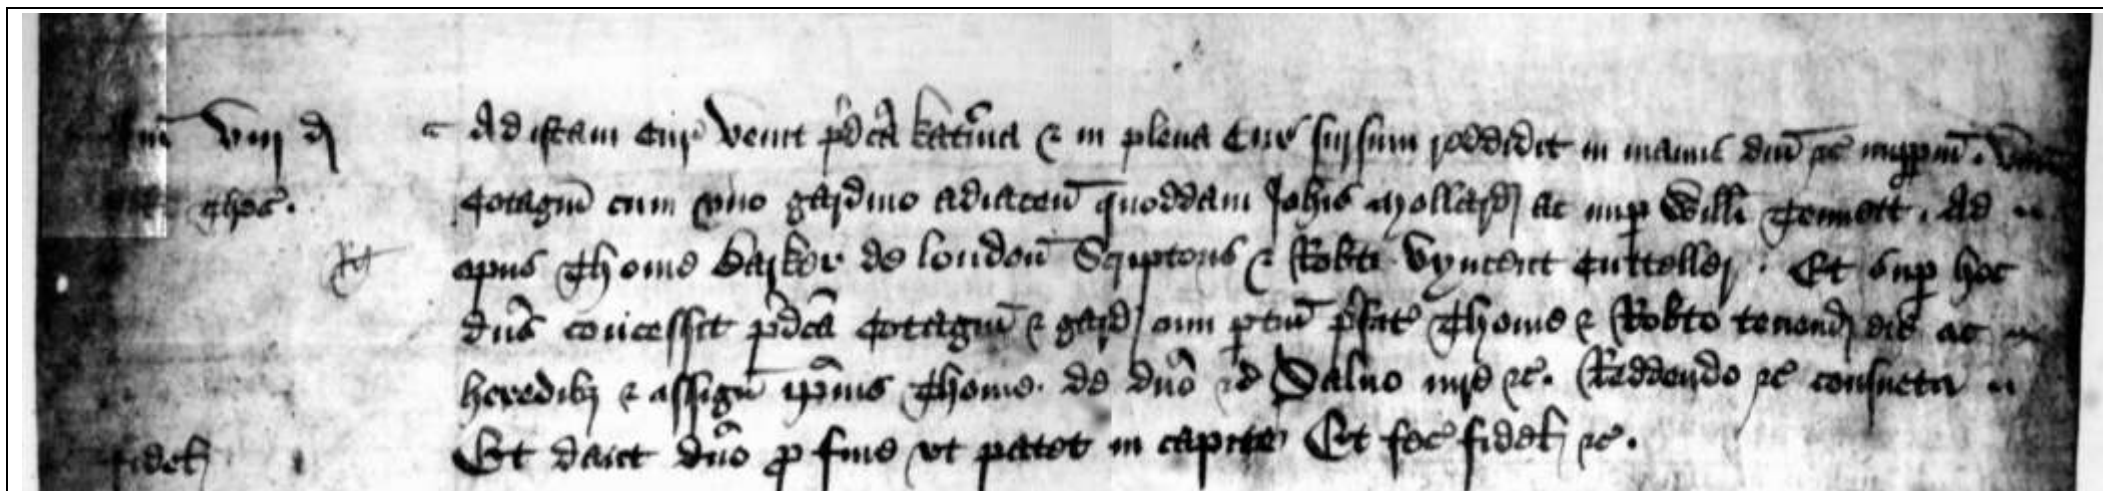 viij d
Ad istam Cur' venit p'dca Kat'ina & in plena Cur' sursum reddidit in manus dni &c
Cotagiu cum uno gardino adiacen quoddam Johis ac nup Willi Ad
opus Thome Barker de london Scriptoris & Robti Vyncent Cutteller. Et sup hoc
dns concessit p'dca Cotagiu & gard cum p'tin p'fat' Thome & Robto tenend eis ac
heredibz & assign ip'ius Thome. de dno &c Salvo iure &c. Reddendo &c consueta
fidel Et dant dno p fine ut patet in capite Et fec' fidel &c.